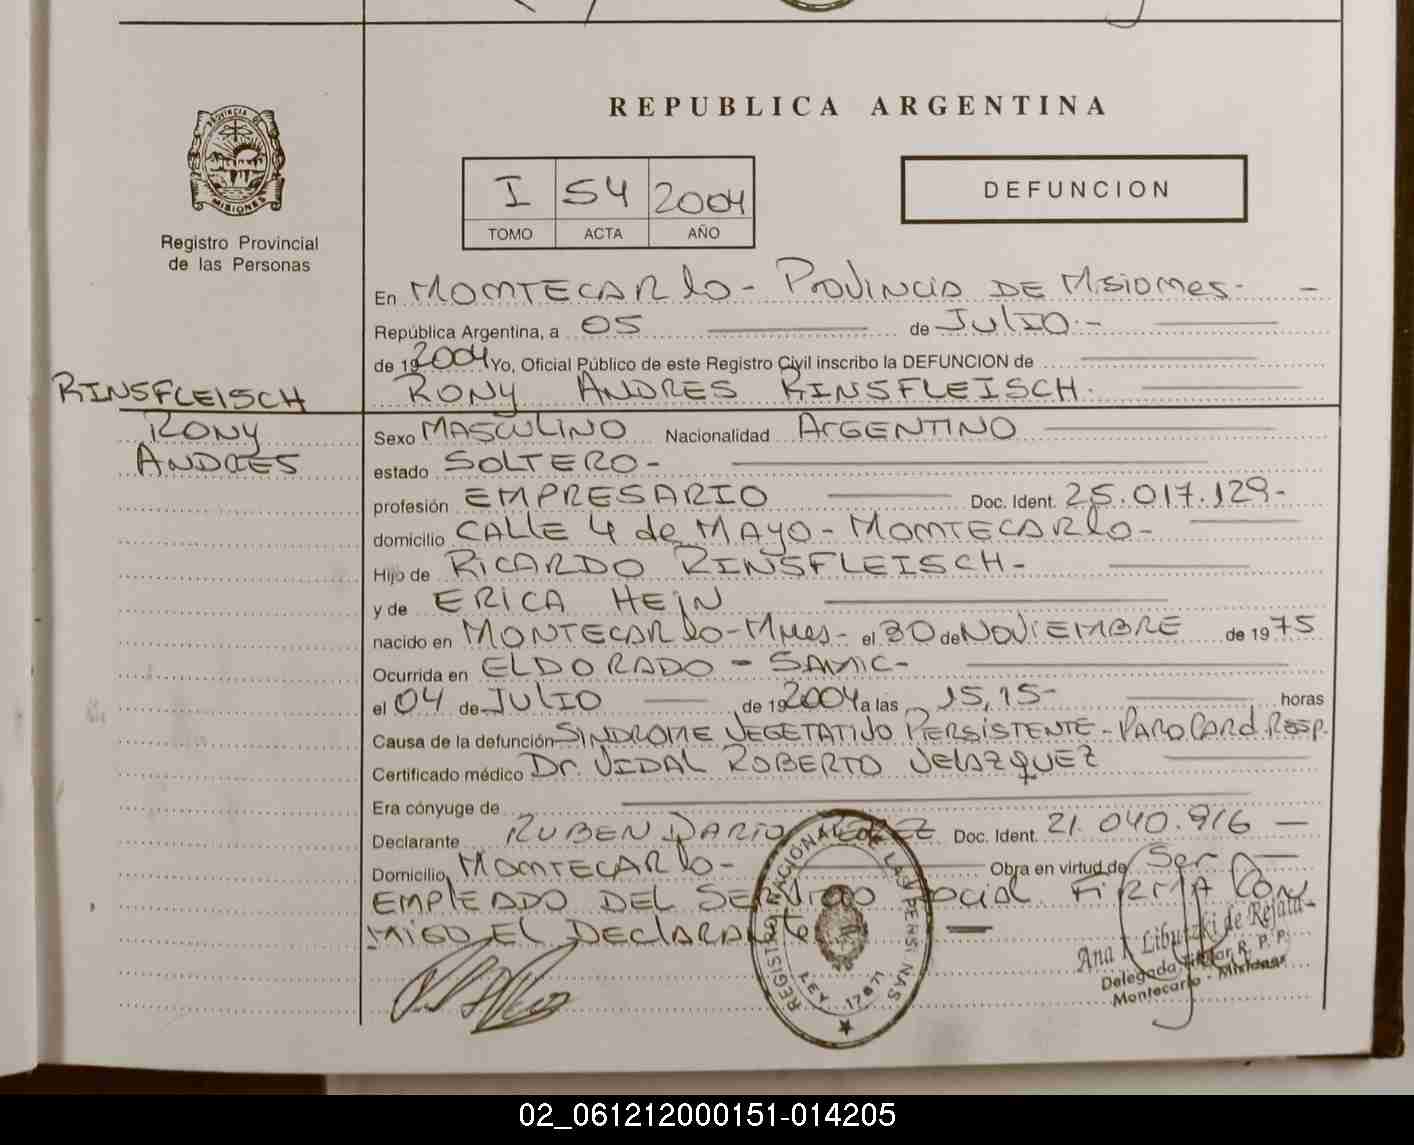 REPUBLICA ARGENTINA
PROVINCIA DE
MISIONES
Registro Provincial
de las Personas
I 54 2004
TOMO ACTA AÑO
DEFUNCION
En MONTECARLO - PROVINCIA DE MISIONES - -
República Argentina, a 05 de JULIO - -
de 19 2004 Yo, Oficial Público de este Registro Civil inscribo la DEFUNCION de
RONY ANDRES RINSFLEISCH.
RINSFLEISCH
RONY
ANDRES
Sexo MASCULINO Nacionalidad ARGENTINO
estado SOLTERO -
profesión EMPRESARIO Doc. Ident. 25.017.129-
domicilio CALLE 4 de MAYO - MONTECARLO -
Hijo de RICARDO RINSFLEISCH -
y de ERICA HEIN
nacido en MONTECARLO - Mnes - el 30 de NOVIEMBRE de 19 75
Ocurrida en ELDORADO - SAMIC -
el 04 de JULIO de 19 2004 a las 15,15- horas
Causa de la defunción SINDROME VEGETATIVO PERSISTENTE - PARO CARD. RESP.
Certificado médico Dr. VIDAL ROBERTO VELAZQUEZ
Era cónyuge de
Declarante RUBEN DARIO Doc. Ident. 21.040.916 -
Domicilio MONTECARLO - Obra en virtud de Ser
EMPLEADO DEL SERVICIO SOCIAL FIRMA CON
MIGO EL DECLARANTE -
REGISTRO NACIONAL DE LAS PERSONAS
LEY 17671
Delegada Titular R. P. P.
Montecarlo - Misiones
02_061212000151-014205